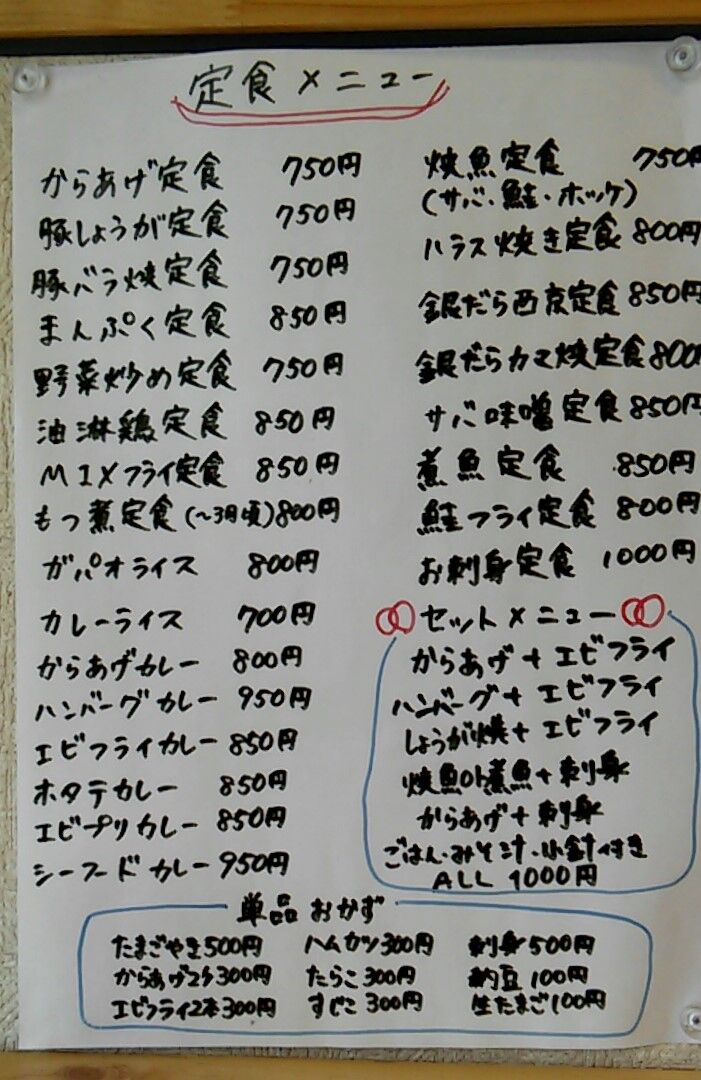 定食メニュー
からあげ定食 750円
豚しょうが定食 750円
豚バラ焼定食 750円
まんぷく定食 850円
野菜炒め定食 750円
油淋鶏定食 850円
MIXフライ定食 850円
もつ煮定食(〜3月頃)800円
ガパオライス 800円
カレーライス 700円
からあげカレー 800円
ハンバーグカレー 950円
エビフライカレー 850円
ホタテカレー 850円
エビプリカレー 850円
シーフードカレー 950円
焼魚定食 750円
(サバ・鮭・ホッケ)
ハラス焼き定食 800円
銀だら西京定食 850円
銀だらカマ焼定食 800円
サバ味噌定食 850円
煮魚定食 850円
鮭フライ定食 800円
お刺身定食 1000円
セットメニュー
からあげ+エビフライ
ハンバーグ+エビフライ
しょうが焼+エビフライ
焼魚or煮魚+刺身
からあげ+刺身
ごはん・みそ汁・小鉢付き
ALL 1000円
単品おかず
たまごやき500円 ハムカツ300円 刺身500円
からあげ2ケ300円 たらこ300円 納豆100円
エビフライ2本300円 すじこ300円 生たまご100円